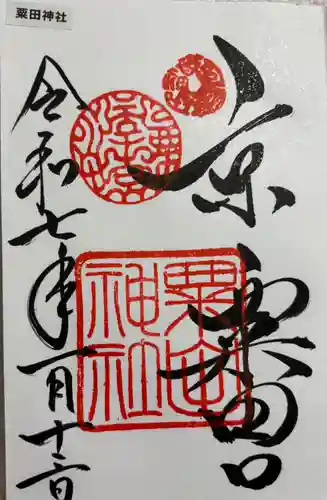 粟田神社
京
粟田口
粟田神社
令和七年一月十二日